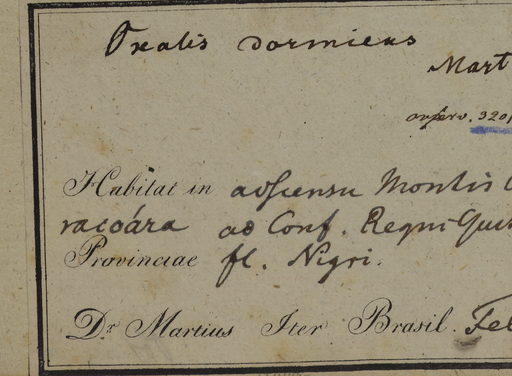 Oxalis dormiens
Mart
observ. 320
Habitat in adscensu Montis
racoára ad Conf. Regni
Provinciae fl. Nigri.
Dr. Martius Iter Brasil. Feb